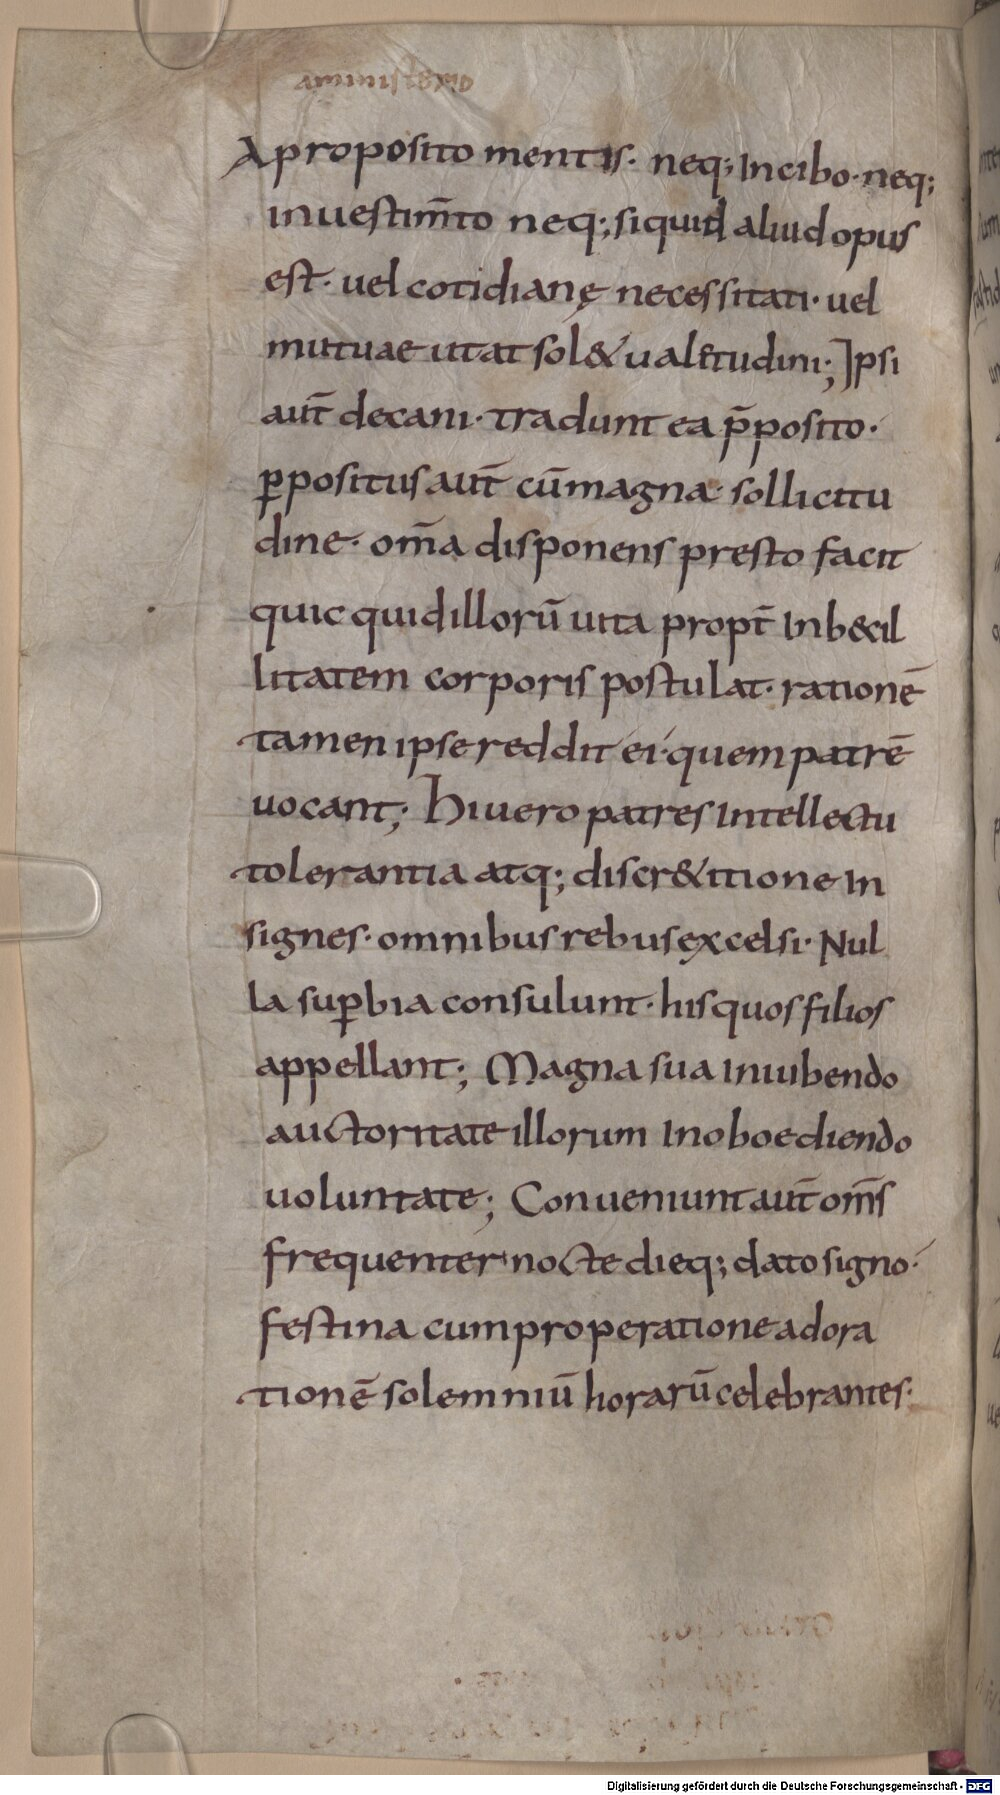 A proposito mentis· neq; In cibo· neq;
in uestim̄to neq; si quid aliud opus
est· uel cotidianę necessitati· uel
mutuae ut at sol& ualetudini; Ipsi
aut̄ decani· tradunt ea p̄posito·
ꝑpositus aut̄ cū magna· sollicitu
dine· om̄a disponens presto facit
quic quid illorū uita propt̄ Inb&cil
litatem corporis postulat· rationē
tamen ipse reddit ei· quem patrē
uocant; Hi uero patres Intellectu
tolerantia atq; discr&itione In
signes· omnibus rebus excelsi· Nul
la suꝑbia consulunt· his quos filios
appellant; Magna sua In iubendo
auctoritate illorum In oboediendo
uoluntate; Conueniunt aut̄ om̄s
frequenter nocte dieq; dato signo·
festina cum properatione ad ora
tionē solemniū horarū celebrantes·
Digitalisierung gefördert durch die Deutsche Forschungsgemeinschaft - DFG